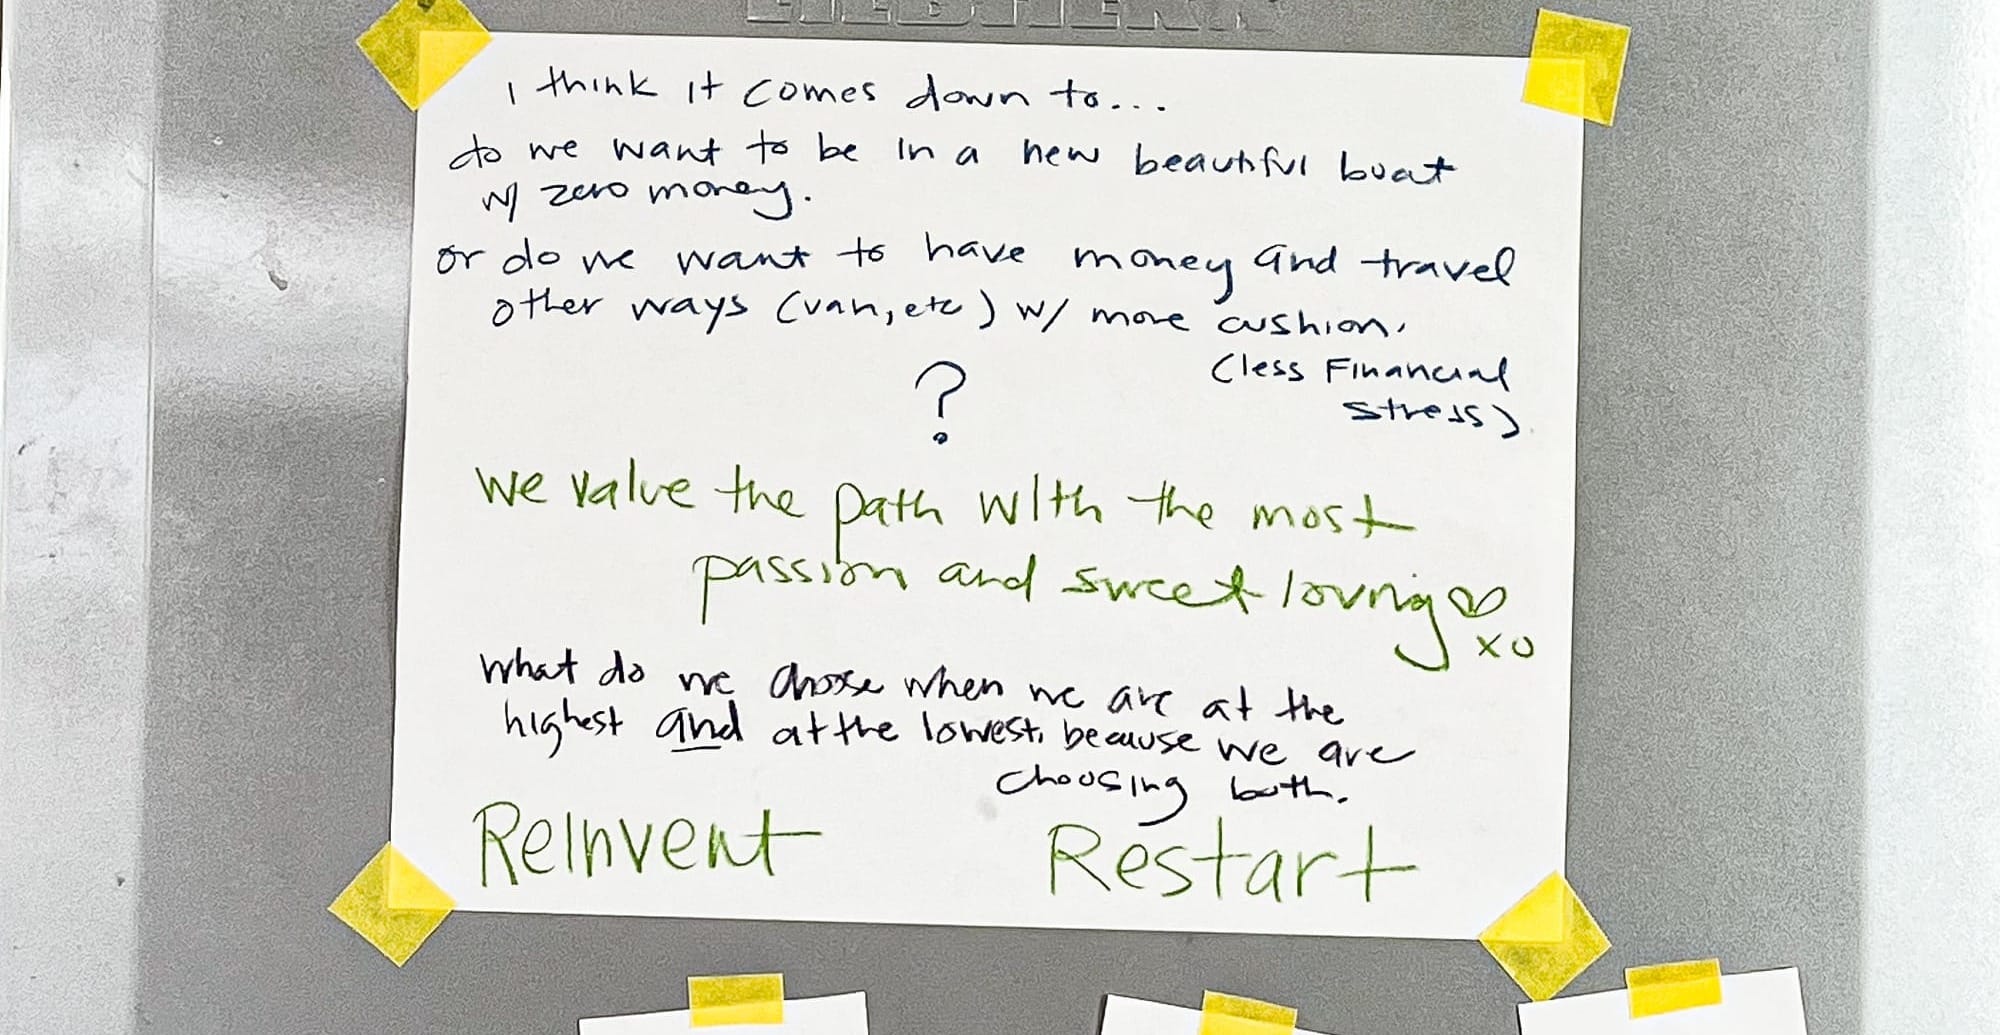 LIEBHERR
I think it comes down to...
do we want to be in a new beautiful boat
w/ zero money.
or do we want to have money and travel
other ways (van, etc) w/ more cushion.
(less Financial
stress)
?
we value the path with the most
passion and sweet loving ♡
xo
what do we choose when we are at the
highest and at the lowest, because we are
choosing both.
ReInvent Restart